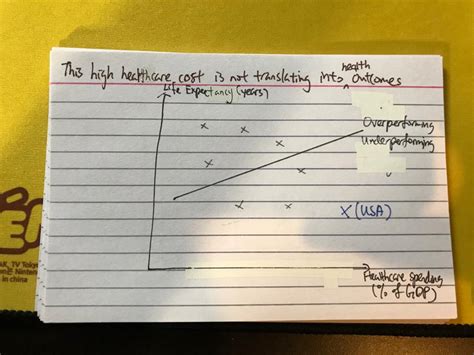 This high healthcare cost is not translating into health outcomes
Life Expectancy (years)
Overperforming
Underperforming
X (USA)
Healthcare spending
(% of GDP)
TV Tokyo
Nintendo
in china